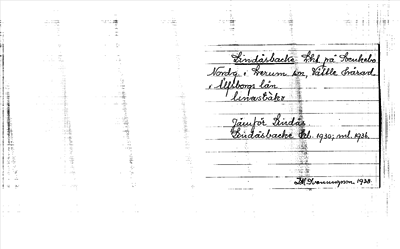 Lindåsbacke Lht på Svenkebo
Nordg. i Lerum sn, Vättle härad
i Älfsborgs län.
linåsbakə
Jämför Lindås
Lindåsbacke hl. 1930; ml. 1936.
1938